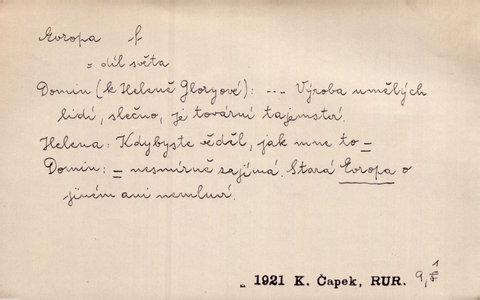 Evropa f
= díl světa
Domin (k Heleně Gloryové): --- Výroba umělých
lidí, slečno, je tovární tajemství.
Helena: Kdybyste věděl, jak mne to =
Domin: = nesmírně zajímá. Stará Evropa o
jiném ani nemluví.
„ 1921 K. Čapek, RUR. 9,